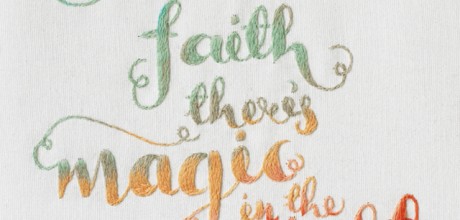 faith
there's
magic
in the